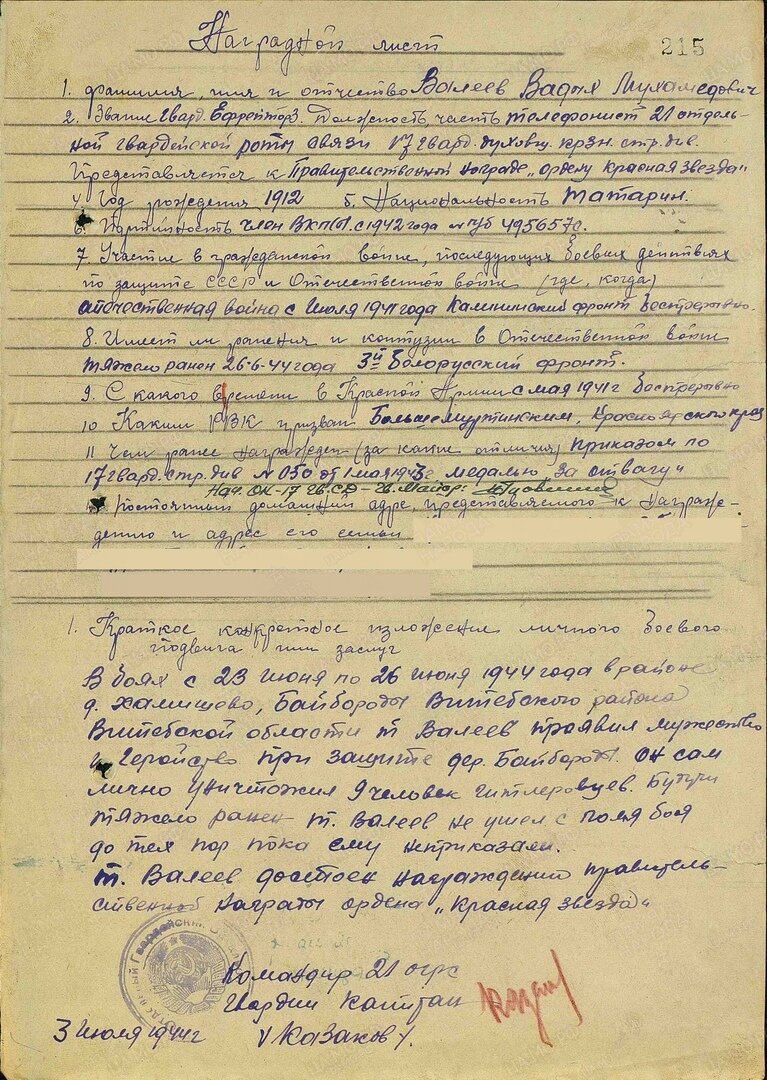 Наградной лист
215
1. фамилия, имя и отчество Валеев Вадых Мухамедович
2. Звание Гвард. Ефрейтор 3. Должность часть телефонист 21 отдель-
ной гвардейской роты связи 17 гвард. духовщ. крзн. стр. див.
Представляется к Правительственной награде „ордену Красная Звезда"
4 Год рождения 1912 5. Национальность Татарин.
6. Партийность член ВКП(б). с 1942 года № п/б 4956570.
7. Участие в гражданской войне, последующих боевых действиях
по защите СССР и Отечественной войне (где, когда)
отечественная война с Июля 1941 года Калининский фронт беспрерывно.
8. Имеет ли ранения и контузии в Отечественной войне
тяжело ранен 26-6-44 года 3й Белорусский фронт.
9. С какого времени в Красной Армии с мая 1941 г беспрерывно
10 Каким РВК призван Больше Муртинским, Красноярского края
11 Чем ранее награжден (за какие отличия) Приказом по
17 гвард. стр. див № 050 от 1 мая 1943г медалью „За отвагу"
Нач. ОК-17 гв. СД - гв. Майор:
Постоянный домашний адрес, представляемого к награж-
дению и адрес его семьи
1. Краткое конкретное изложение личного боевого
подвига или заслуг
В боях с 23 июня по 26 июня 1944 года в районе
д. Хамищево, Байбороды Витебского района
Витебской области т Валеев проявил мужество
и Геройство при защите дер. Байбороды. Он сам
лично уничтожил 9 человек гитлеровцев. Будучи
тяжело ранен т. Валеев не ушел с поля боя
до тех пор пока ему неприказали.
т. Валеев достоен награждения правитель-
ственной награды ордена „Красная звезда"
Командир 21 огрс
Гвардии Капитан
3 Июля 1944г /Казаков/.